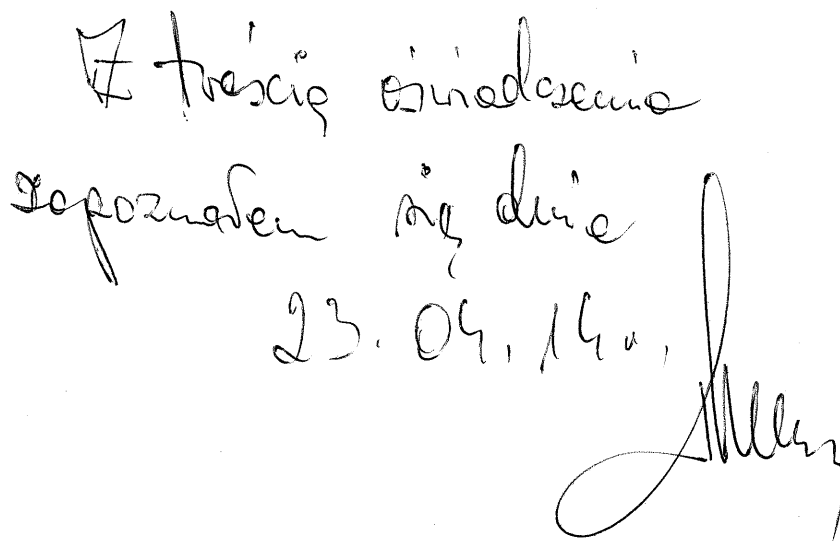 Z treścią oświadczenia
zapoznałem się dnia
23.04.14r.